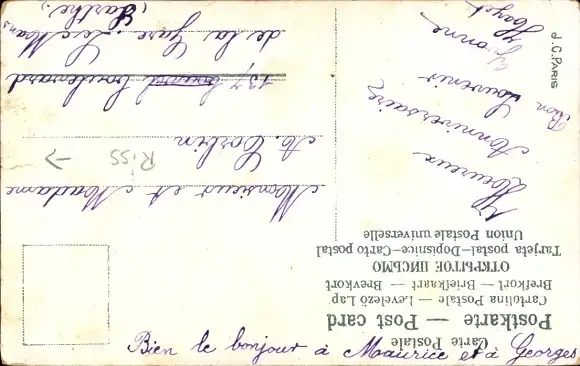 Carte Postale
Postkarte — Post card
Cartolina Postale — Levelező Lap
Brefkort — Briefkaart — Brevkort
ОТКРЫТОЕ ПИСЬМО
Tarjeta postal—Dopisnice—Carto postal
Union Postale universelle
Heureux
Anniversaire
Bon Souvenir
Yvonne
Hayet
Monsieur et Madame
A. Corbin
137 boulevard
de la Gare Le Mans
(Sarthe.)
J.C. PARIS
R.SS
Bien le bonjour à Maurice et à Georges